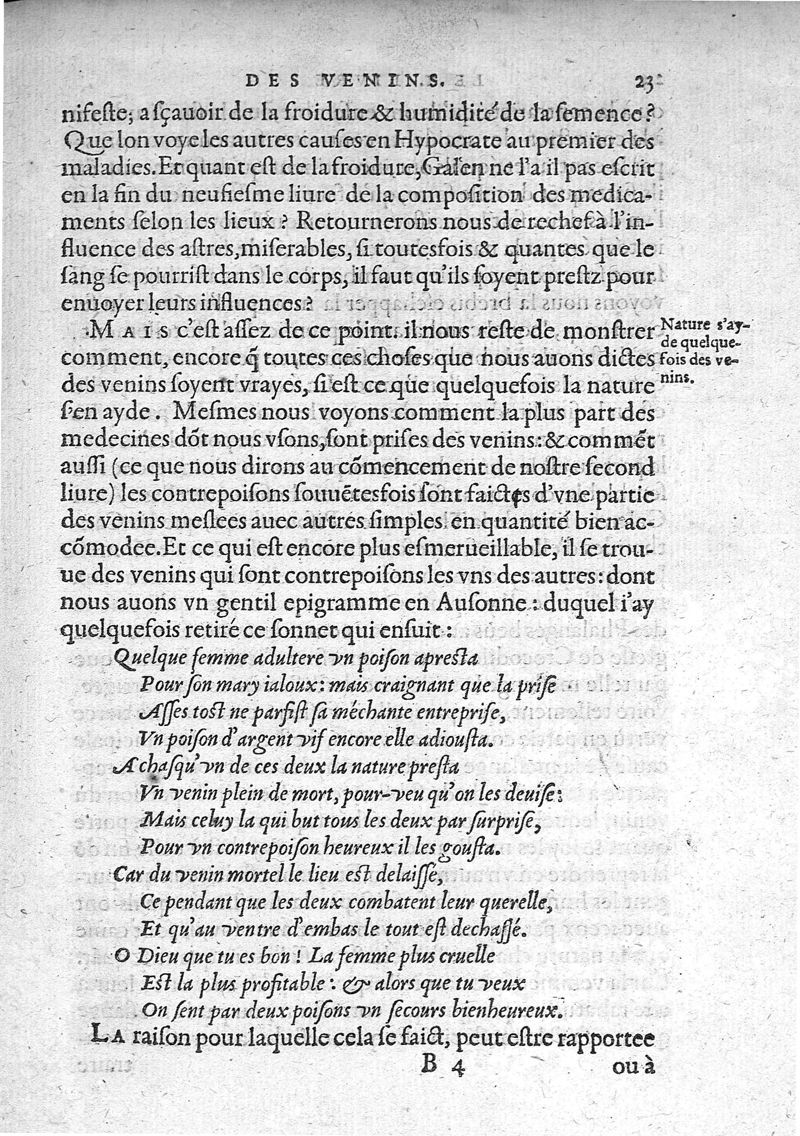 DES VENINS. 23
nifeste; a sçauoir de la froidure & humidité de la semence?
Que lon voye les autres causes en Hypocrate au premier des
maladies. Et quant est de la froidure, Galen ne l'a il pas escrit
en la fin du neufiesme liure de la composition des medica-
ments selon les lieux? Retournerons nous de rechef à l'in-
fluence des astres, miserables, si toutesfois & quantes que le
sang se pourrist dans le corps, il faut qu'ils soyent prestz pour
enuoyer leurs influences?
MAIS c'est assez de ce point. il nous reste de monstrer
comment, encore q̃ toutes ces choses que nous auons dictes
des venins soyent vrayes, si est ce que quelquefois la nature
s'en ayde. Mesmes nous voyons comment la plus part des
medecines dõt nous vsons, sont prises des venins: & commẽt
aussi (ce que nous dirons au cõmencement de nostre second
liure) les contrepoisons souuẽtesfois sont faictes d'vne partie
des venins meslees auec autres simples en quantité bien ac-
cõmodee. Et ce qui est encore plus esmerueillable, il se trou-
ue des venins qui sont contrepoisons les vns des autres: dont
nous auons vn gentil epigramme en Ausonne: duquel i'ay
quelquefois retiré ce sonnet qui ensuit:
Nature s'ay-
de quelque-
fois des ve-
nins.
Quelque femme adultere vn poison apresta
Pour son mary ialoux: mais craignant que la prise
Asses tost ne parfist sa méchante entreprise,
Vn poison d'argent vif encore elle adiousta.
A chasqu'vn de ces deux la nature presta
Vn venin plein de mort, pour-veu qu'on les deuise:
Mais celuy la qui but tous les deux par surprise,
Pour vn contrepoison heureux il les gousta.
Car du venin mortel le lieu est delaisse,
Ce pendant que les deux combatent leur querelle,
Et qu'au ventre d'embas le tout est dechassé.
O Dieu que tu es bon! La femme plus cruelle
Est la plus profitable: & alors que tu veux
On sent par deux poisons vn secours bienheureux.
LA raison pour laquelle cela se faict, peut estre rapportee
B 4 ou à